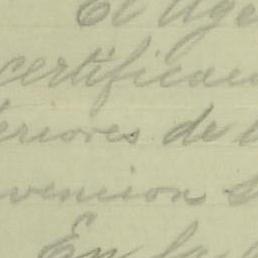 El Age
certificac
teriores de l
vencion S
En la